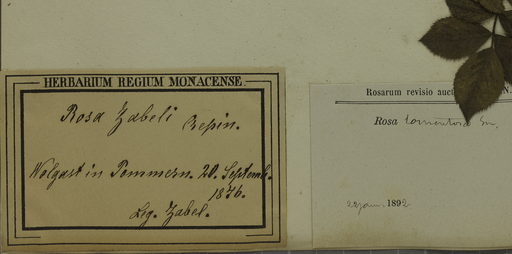 HERBARIUM REGIUM MONACENSE
Rosa Zabeli Crepin.
Wolgast in Pommern. 20. Septemb.
1876.
Leg. Zabel.
Rosarum revisio auct
Rosa tomentosa Sm,
22 janv. 1892